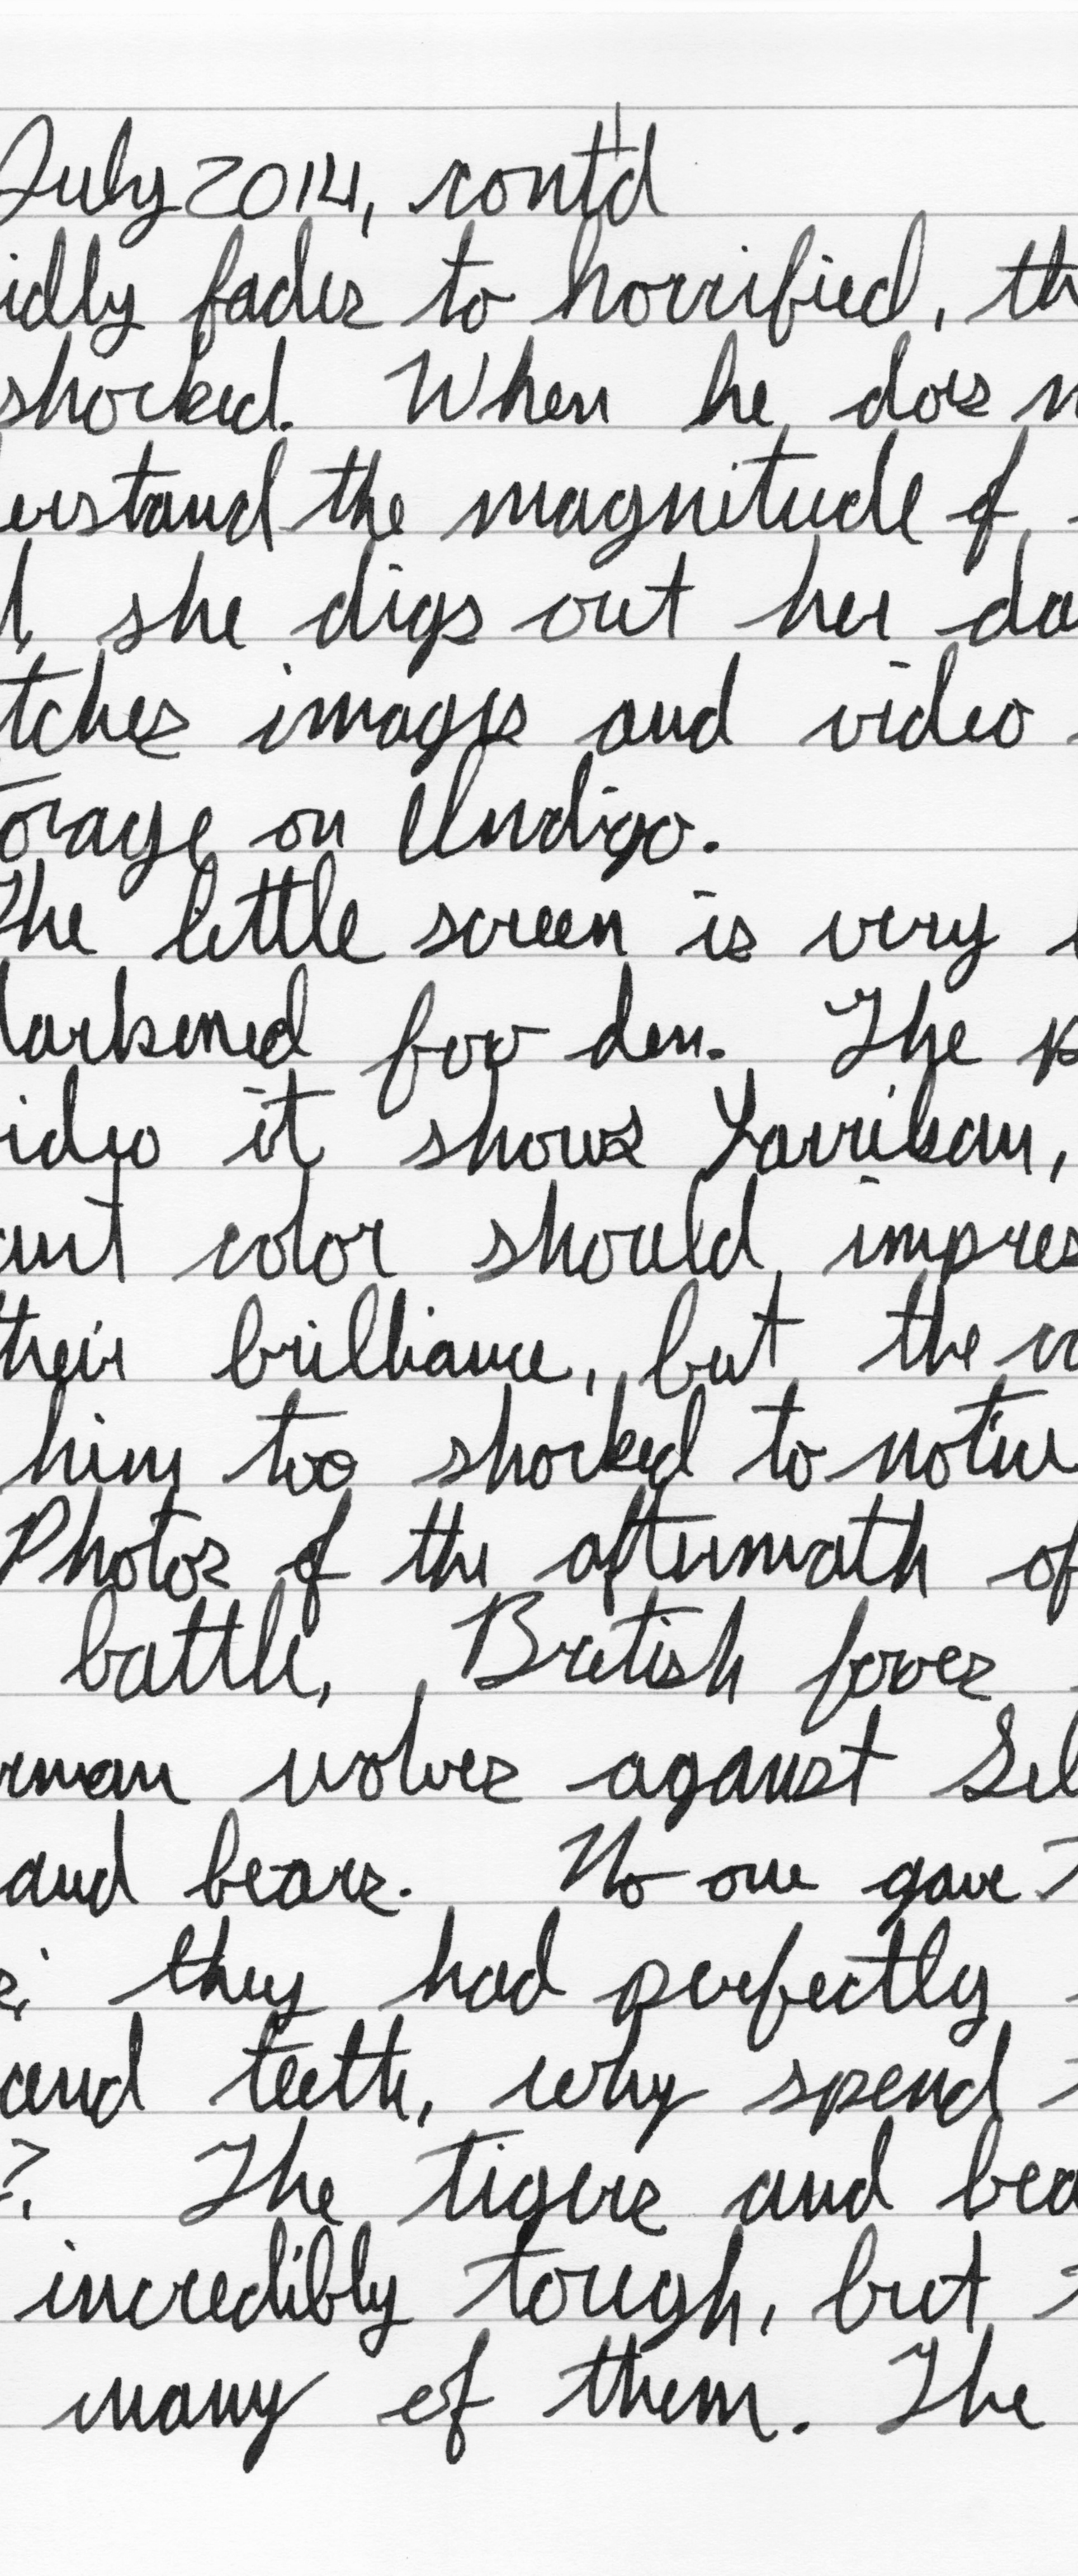 July 2014, cont'd
idly fades to horrified, th
shocked. When he does n
erstand the magnitude of
she digs out her da
tches images and video
orage on Indigo.
The little screen is very
darkened fox den. The
ideo it shows Yarrikan,
ant color should impres
their brilliance, but the
him too shocked to notice
Photos of the aftermath of
battle, British foxes
rman wolves against
and bears. No one gave
they had perfectly
and teeth, why spend
? The tigers and bea
incredibly tough, but
many of them. The